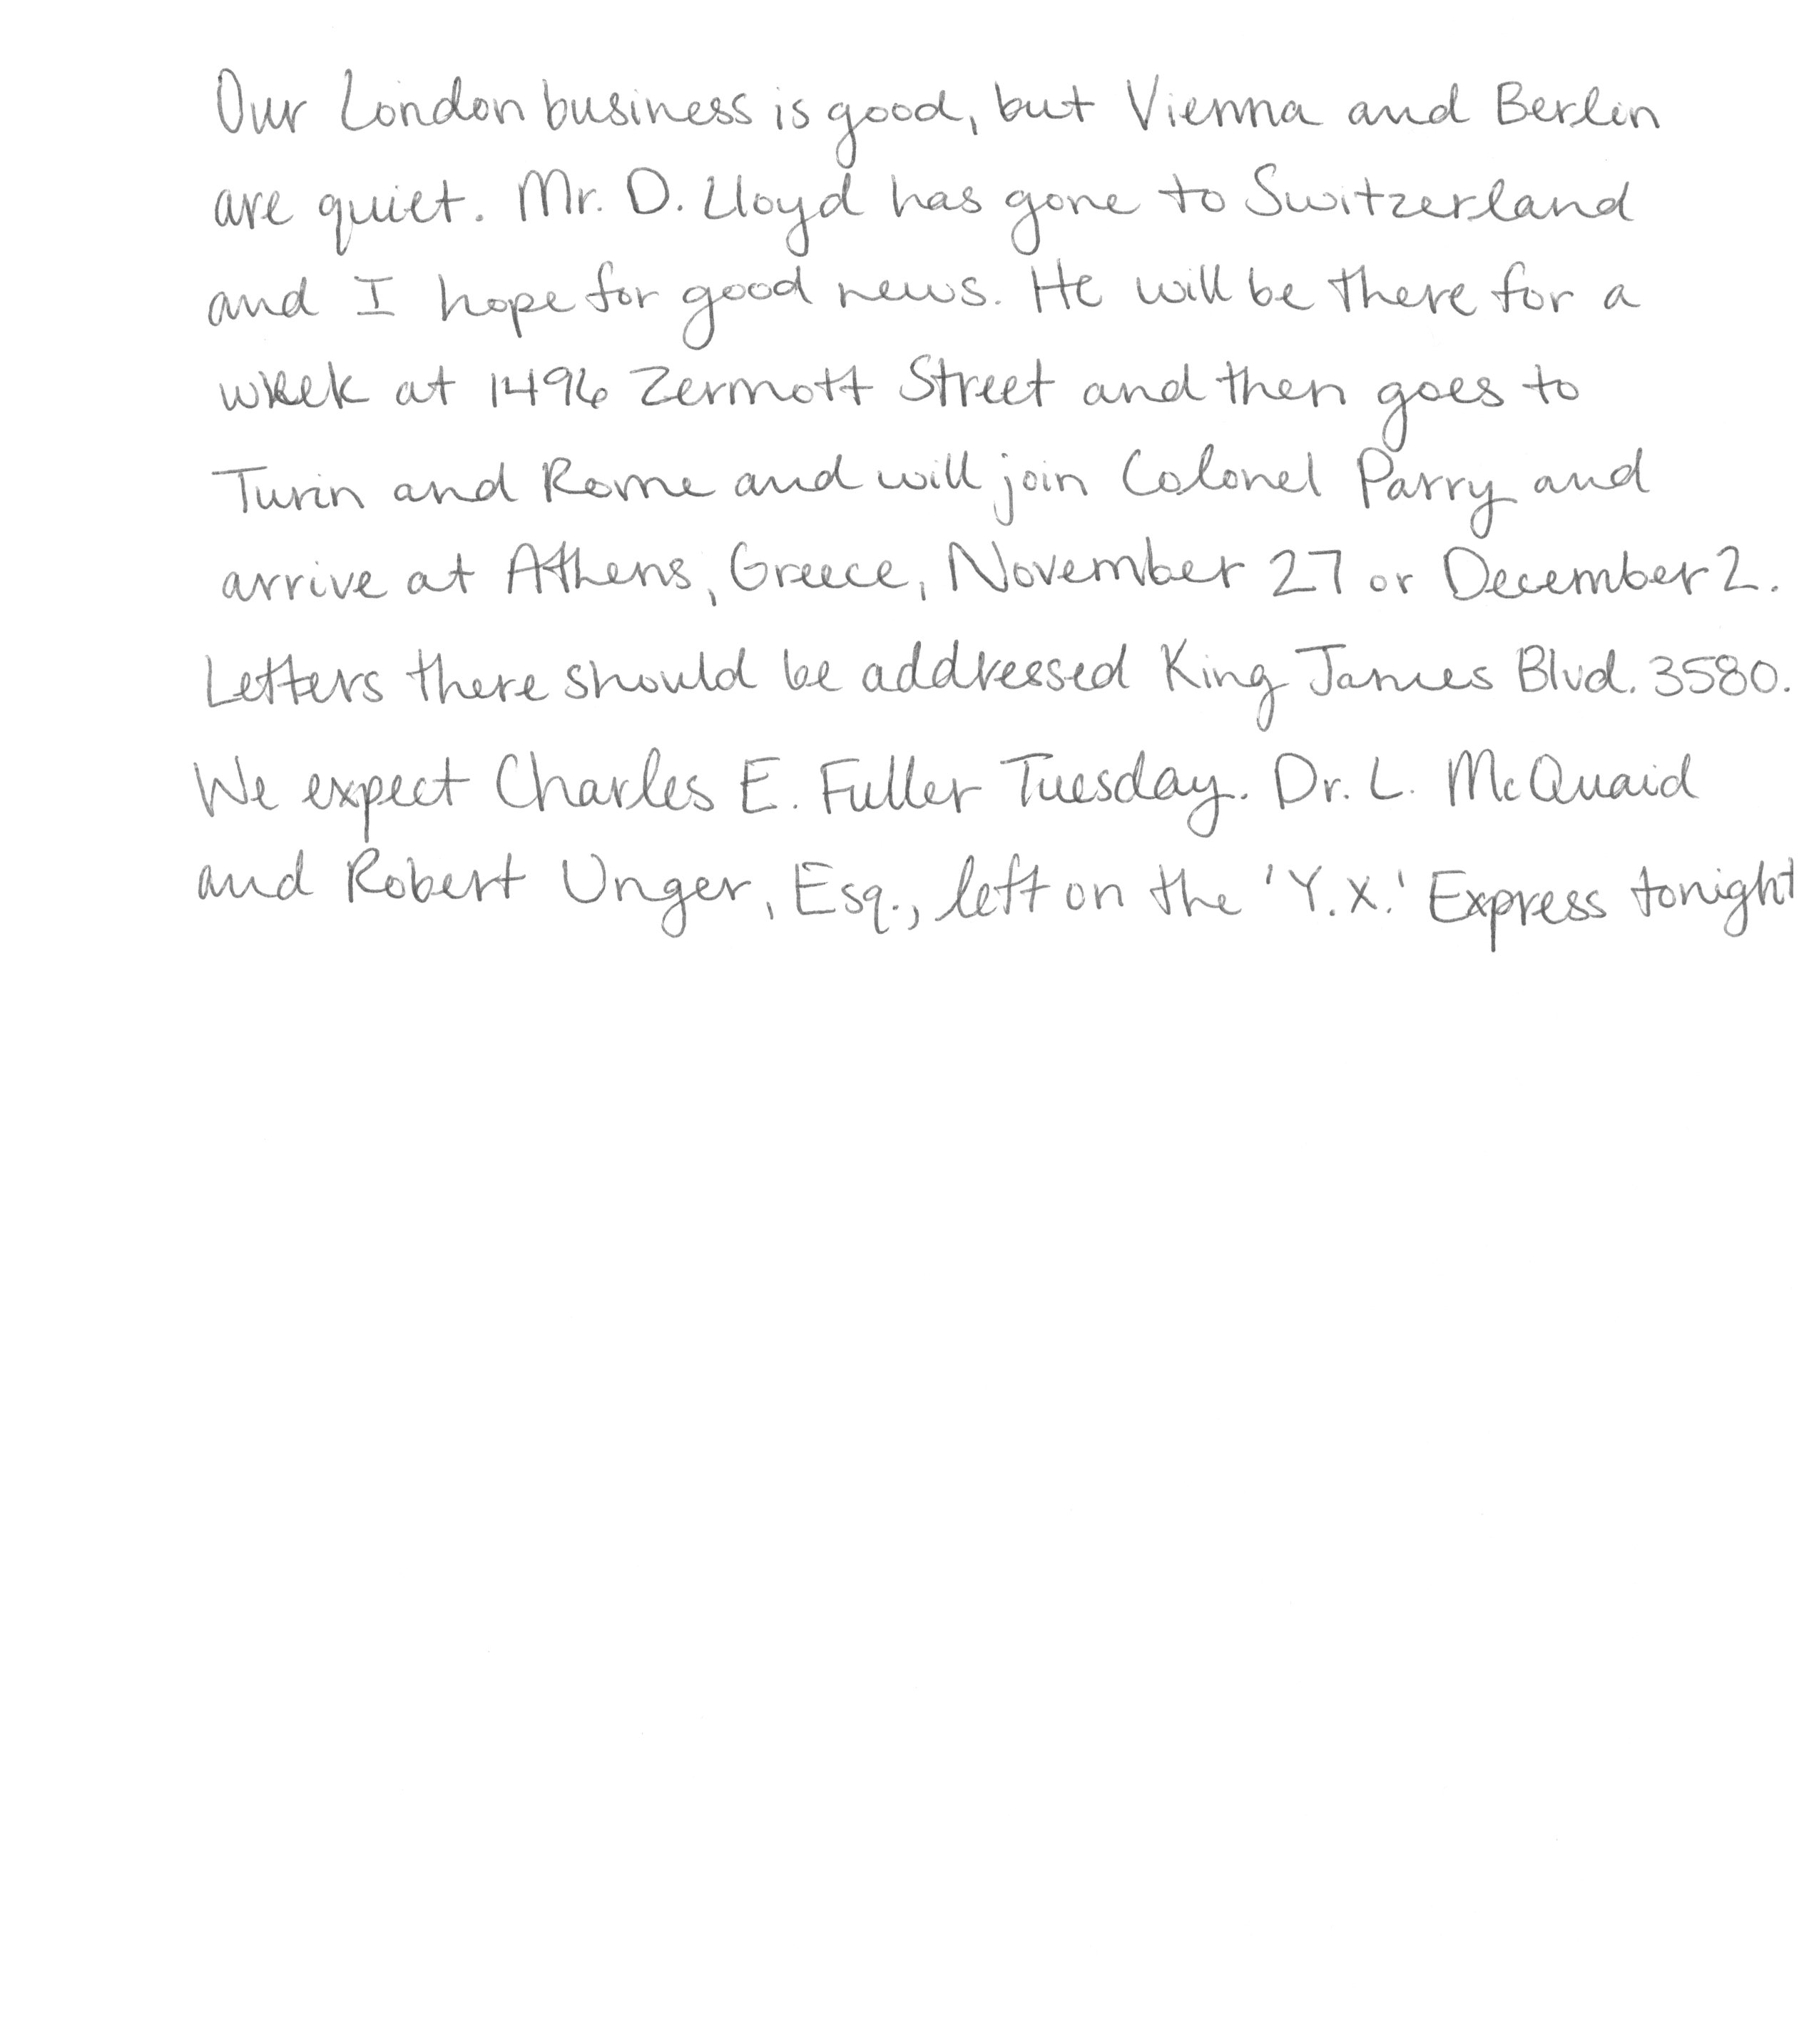 Our London business is good, but Vienna and Berlin
are quiet. Mr. D. Lloyd has gone to Switzerland
and I hope for good news. He will be there for a
week at 1496 Zermott Street and then goes to
Turin and Rome and will join Colonel Parry and
arrive at Athens, Greece, November 27 or December 2.
Letters there should be addressed King James Blvd. 3580.
We expect Charles E. Fuller Tuesday. Dr. L. McQuaid
and Robert Unger, Esq., left on the 'Y.X.' Express tonight